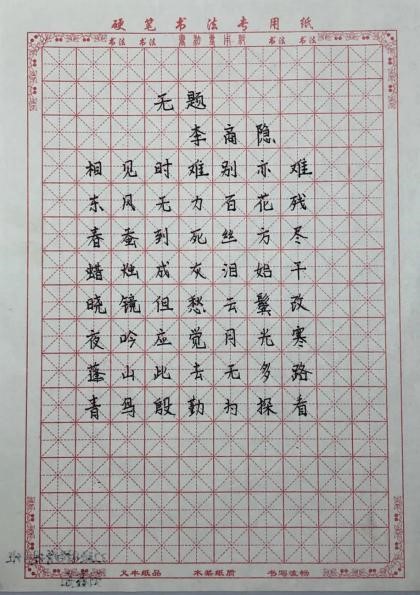 硬笔书法专用纸
书法 书法 书法 书法
无题
李商隐
相见时难别亦难
东风无力百花残
春蚕到死丝方尽
蜡烛成灰泪始干
晓镜但愁云鬓改
夜吟应觉月光寒
蓬山此去无多路
青鸟殷勤为探看
义牛纸品 木浆纸质 书写流畅